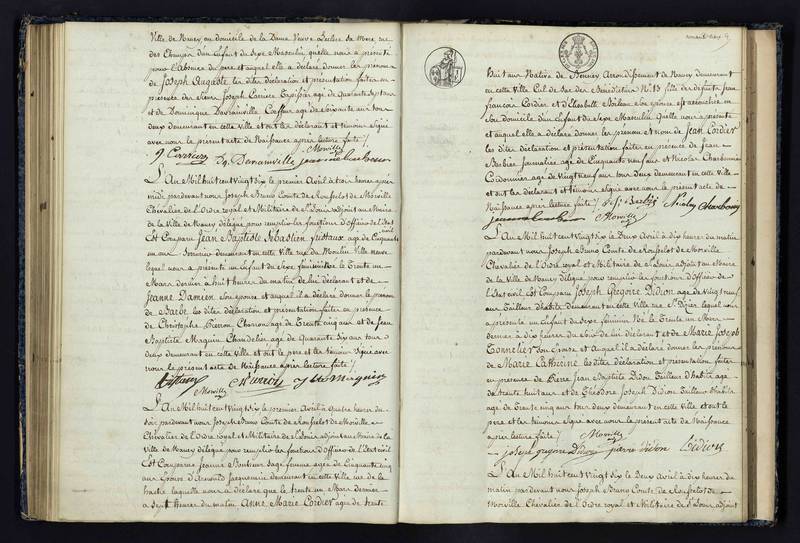 Ville de Nancy au domicile de la Dame Veuve Leclerc de More, rue
des Champs d'un Enfant du Sexe Masculin qu'elle nous a présenté
pour l'absence du pere et auquel elle a déclaré donner les prénoms
de Joseph Auguste les dites déclaration et présentation faites en
présence des Sieurs Joseph Carriere Tapissier agé de Quarante sept ans
et de Dominique Coeffeur agé de Soixante six ans tous
deux demeurant en cette Ville et ont la déclarant et témoins Signé
avec nous le présent acte de Naissance après lecture faite /
Morville
L'An Mil huit cent Vingt six le premier Avril à trois heures après
midi pardevant nous Joseph Bruno Comte de Rousselot de Morville
Chevalier de l'Ordre royal et Militaire de St Louis adjoint au Maire
de la Ville de Nancy délégué pour remplir les fonctions d'Officier de l'Etat
civil
Est Comparu Jean Baptiste Sébastien Justaux agé de Cinquante
un ans Serrurier demeurant en cette Ville rue du Moulin Ville neuve
lequel nous a présenté un Enfant du Sexe féminin né le Trente un
Mars dernier à huit heures du matin de lui déclarant et de
Jeanne Damien Son épouse et auquel il a déclaré donner le prénom
de Barbe les dites déclaration et présentation faites en présence
de Christophe Pierron Charron agé de Trente cinq ans et de Jean
Baptiste Maquin Chandelier agé de Quarante Six ans tous
deux demeurant en cette Ville et ont le pere et les témoins Signé avec
nous le présent acte de Naissance après lecture faite /
Morville
L'An Mil huit cent Vingt six le premier Avril à quatre heures du
soir pardevant nous Joseph Bruno Comte de Rousselot de Morville
Chevalier de l'Ordre royal et Militaire de St Louis adjoint au Maire de la
Ville de Nancy délégué pour remplir les fonctions d'Officier de l'Etat civil
Est Comparue Jeanne Bonheur Sage femme agée de Cinquante cinq
ans Epouse d'Arnould Jacquemin demeurant en cette Ville rue de la
hache laquelle nous a déclaré que le trente un Mars dernier
a Sept heures du matin Anne Marie Cordier agée de trente
huit ans Native de Arrondissement de Nancy demeurant
en cette Ville Cul de Sac des Bénédictins No 13 fille de défunts Jean
françois Cordier et d'Elisabeth Son épouse est accouchée en
Son domicile d'un Enfant du Sexe Masculin qu'elle nous a présenté
et auquel elle a déclaré donner les prénom et nom de Jean Cordier
les dites déclaration et présentation faites en présence de Jean
Barbier Journalier agé de Cinquante neuf ans et Nicolas Charbonnier
Cordonnier agé de Vingt neuf ans tous deux demeurant en cette Ville
et ont les déclarant et témoins Signé avec nous le présent acte de
Naissance après lecture faite /
Morville
L'An Mil huit cent Vingt six le Deux Avril à dix heures du matin
pardevant nous Joseph Bruno Comte de Rousselot de Morville
Chevalier de l'Ordre royal et Militaire de St Louis adjoint au Maire
de la Ville de Nancy délégué pour remplir les fonctions d'Officier de
l'Etat civil Est Comparu Joseph Gregoire Didion agé de Vingt neuf
ans Tailleur d'habits demeurant en cette Ville rue St Dizier lequel nous
a présenté un Enfant du Sexe féminin Né le Trente un Mars
dernier à dix heures du Soir de lui déclarant et de Marie Joseph
Tonnelier Son épouse et auquel il a déclaré donner les prénoms
de Marie Catherine les dites déclaration et présentation faites
en présence de Pierre Jean Baptiste Didion Tailleur d'habits agé
de trente huit ans et de Théodore Joseph Didion Tailleur d'habits
agé de Trente cinq ans tous deux demeurant en cette Ville et ont le
pere et les témoins Signé avec nous le présent acte de Naissance
après lecture faite / Morville
joseph gregoire Didion pierre didion Tédion
L'An Mil huit cent Vingt six le Deux Avril à dix heures du
matin pardevant nous Joseph Bruno Comte de Rousselot de
Morville Chevalier de l'Ordre royal et Militaire de St Louis adjoint